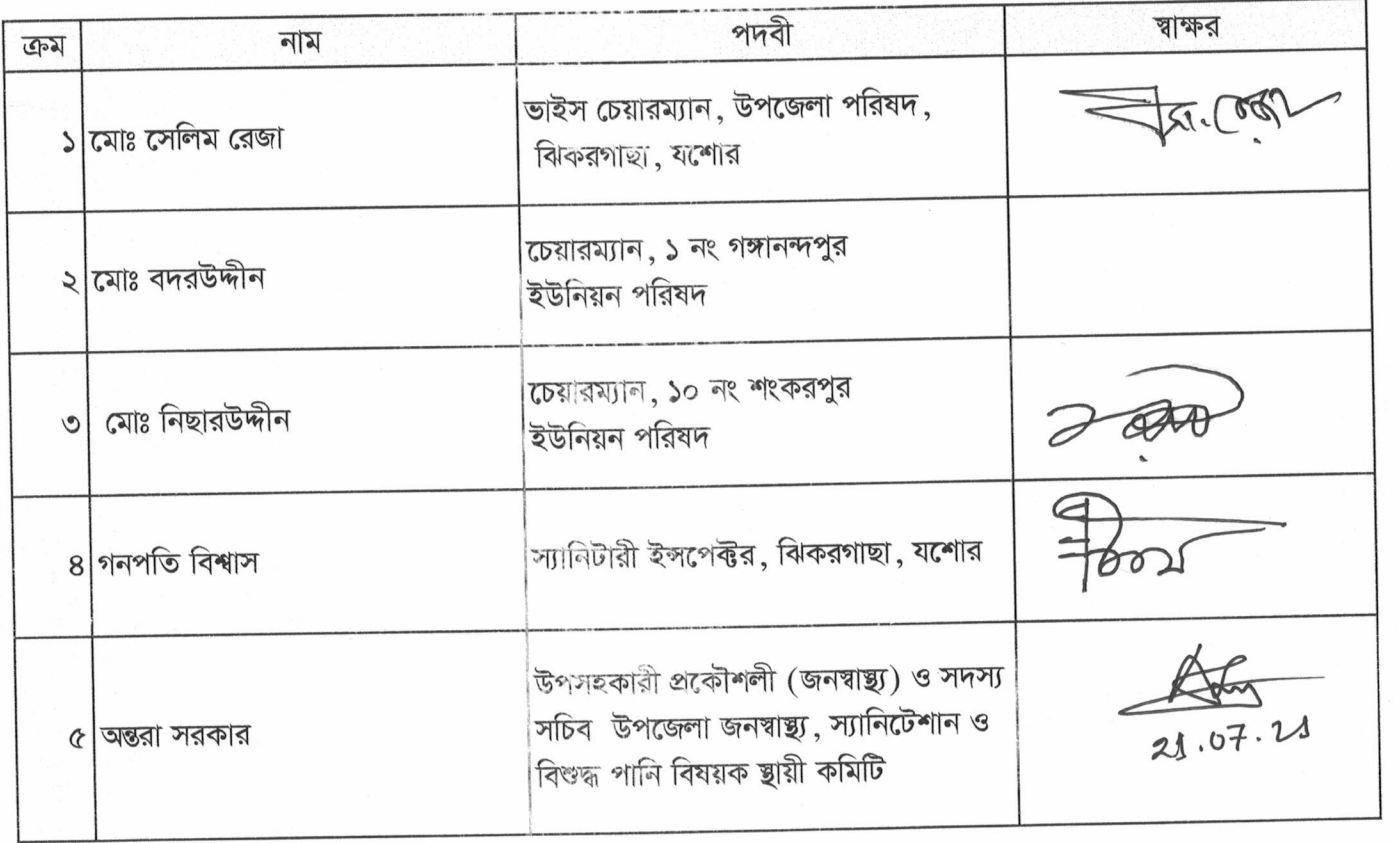 ক্রম নাম পদবী স্বাক্ষর
১ মোঃ সেলিম রেজা ভাইস চেয়ারম্যান, উপজেলা পরিষদ,
ঝিকরগাছা, যশোর
২ মোঃ বদরউদ্দীন চেয়ারম্যান, ১ নং গঙ্গানন্দপুর
ইউনিয়ন পরিষদ
৩ মোঃ নিছারউদ্দীন চেয়ারম্যান, ১০ নং শংকরপুর
ইউনিয়ন পরিষদ
৪ গনপতি বিশ্বাস স্যানিটারী ইন্সপেক্টর, ঝিকরগাছা, যশোর
৫ অন্তরা সরকার উপসহকারী প্রকৌশলী (জনস্বাস্থ্য) ও সদস্য
সচিব উপজেলা জনস্বাস্থ্য, স্যানিটেশান ও
বিশুদ্ধ পানি বিষয়ক স্থায়ী কমিটি
21.07.21